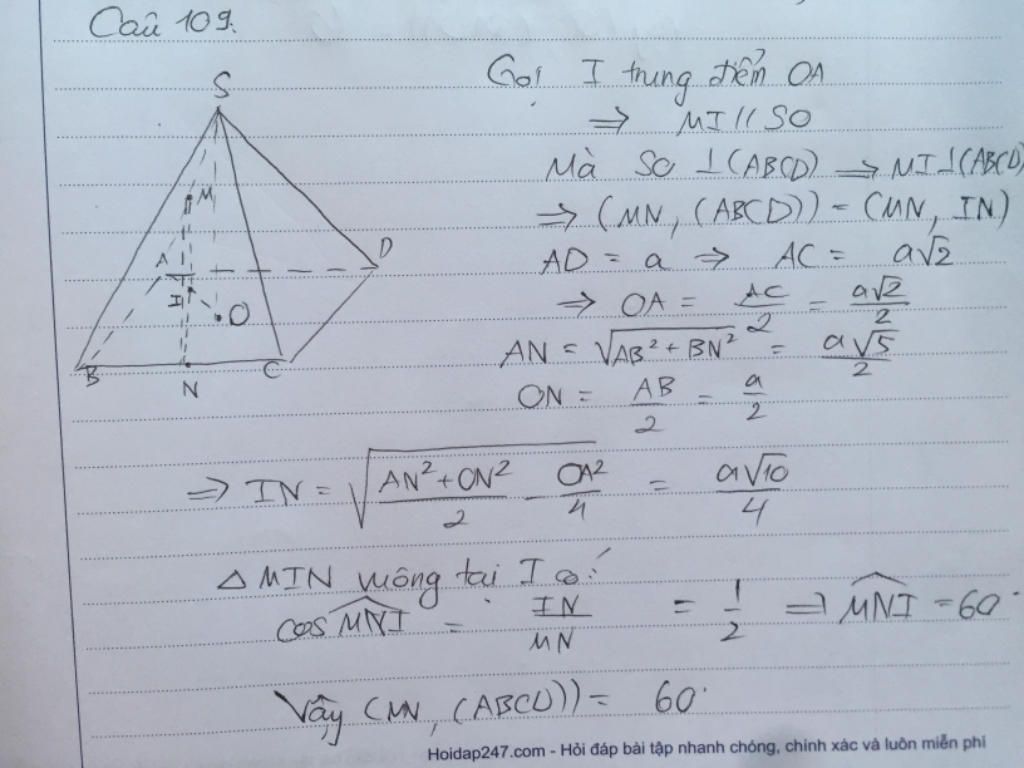 Câu 109.
S
M
A
D
I
O
B
N
C
Gọi I trung điểm OA
⇒ MI // SO
Mà SO ⊥ (ABCD) ⇒ MI ⊥ (ABCD)
⇒ (MN, (ABCD)) = (MN, IN)
AD = a ⇒ AC = a√2
⇒ OA = AC/2 = a√2/2
AN = √(AB² + BN²) = a√5/2
ON = AB/2 = a/2
⇒ IN = √((AN² + ON²)/2 - OA²/4) = a√10/4
△ MIN vuông tại I có:
cos MNI = IN/MN = 1/2 ⇒ MNI = 60°
Vậy (MN, (ABCD)) = 60°
Hoidap247.com - Hỏi đáp bài tập nhanh chóng, chính xác và luôn miễn phí